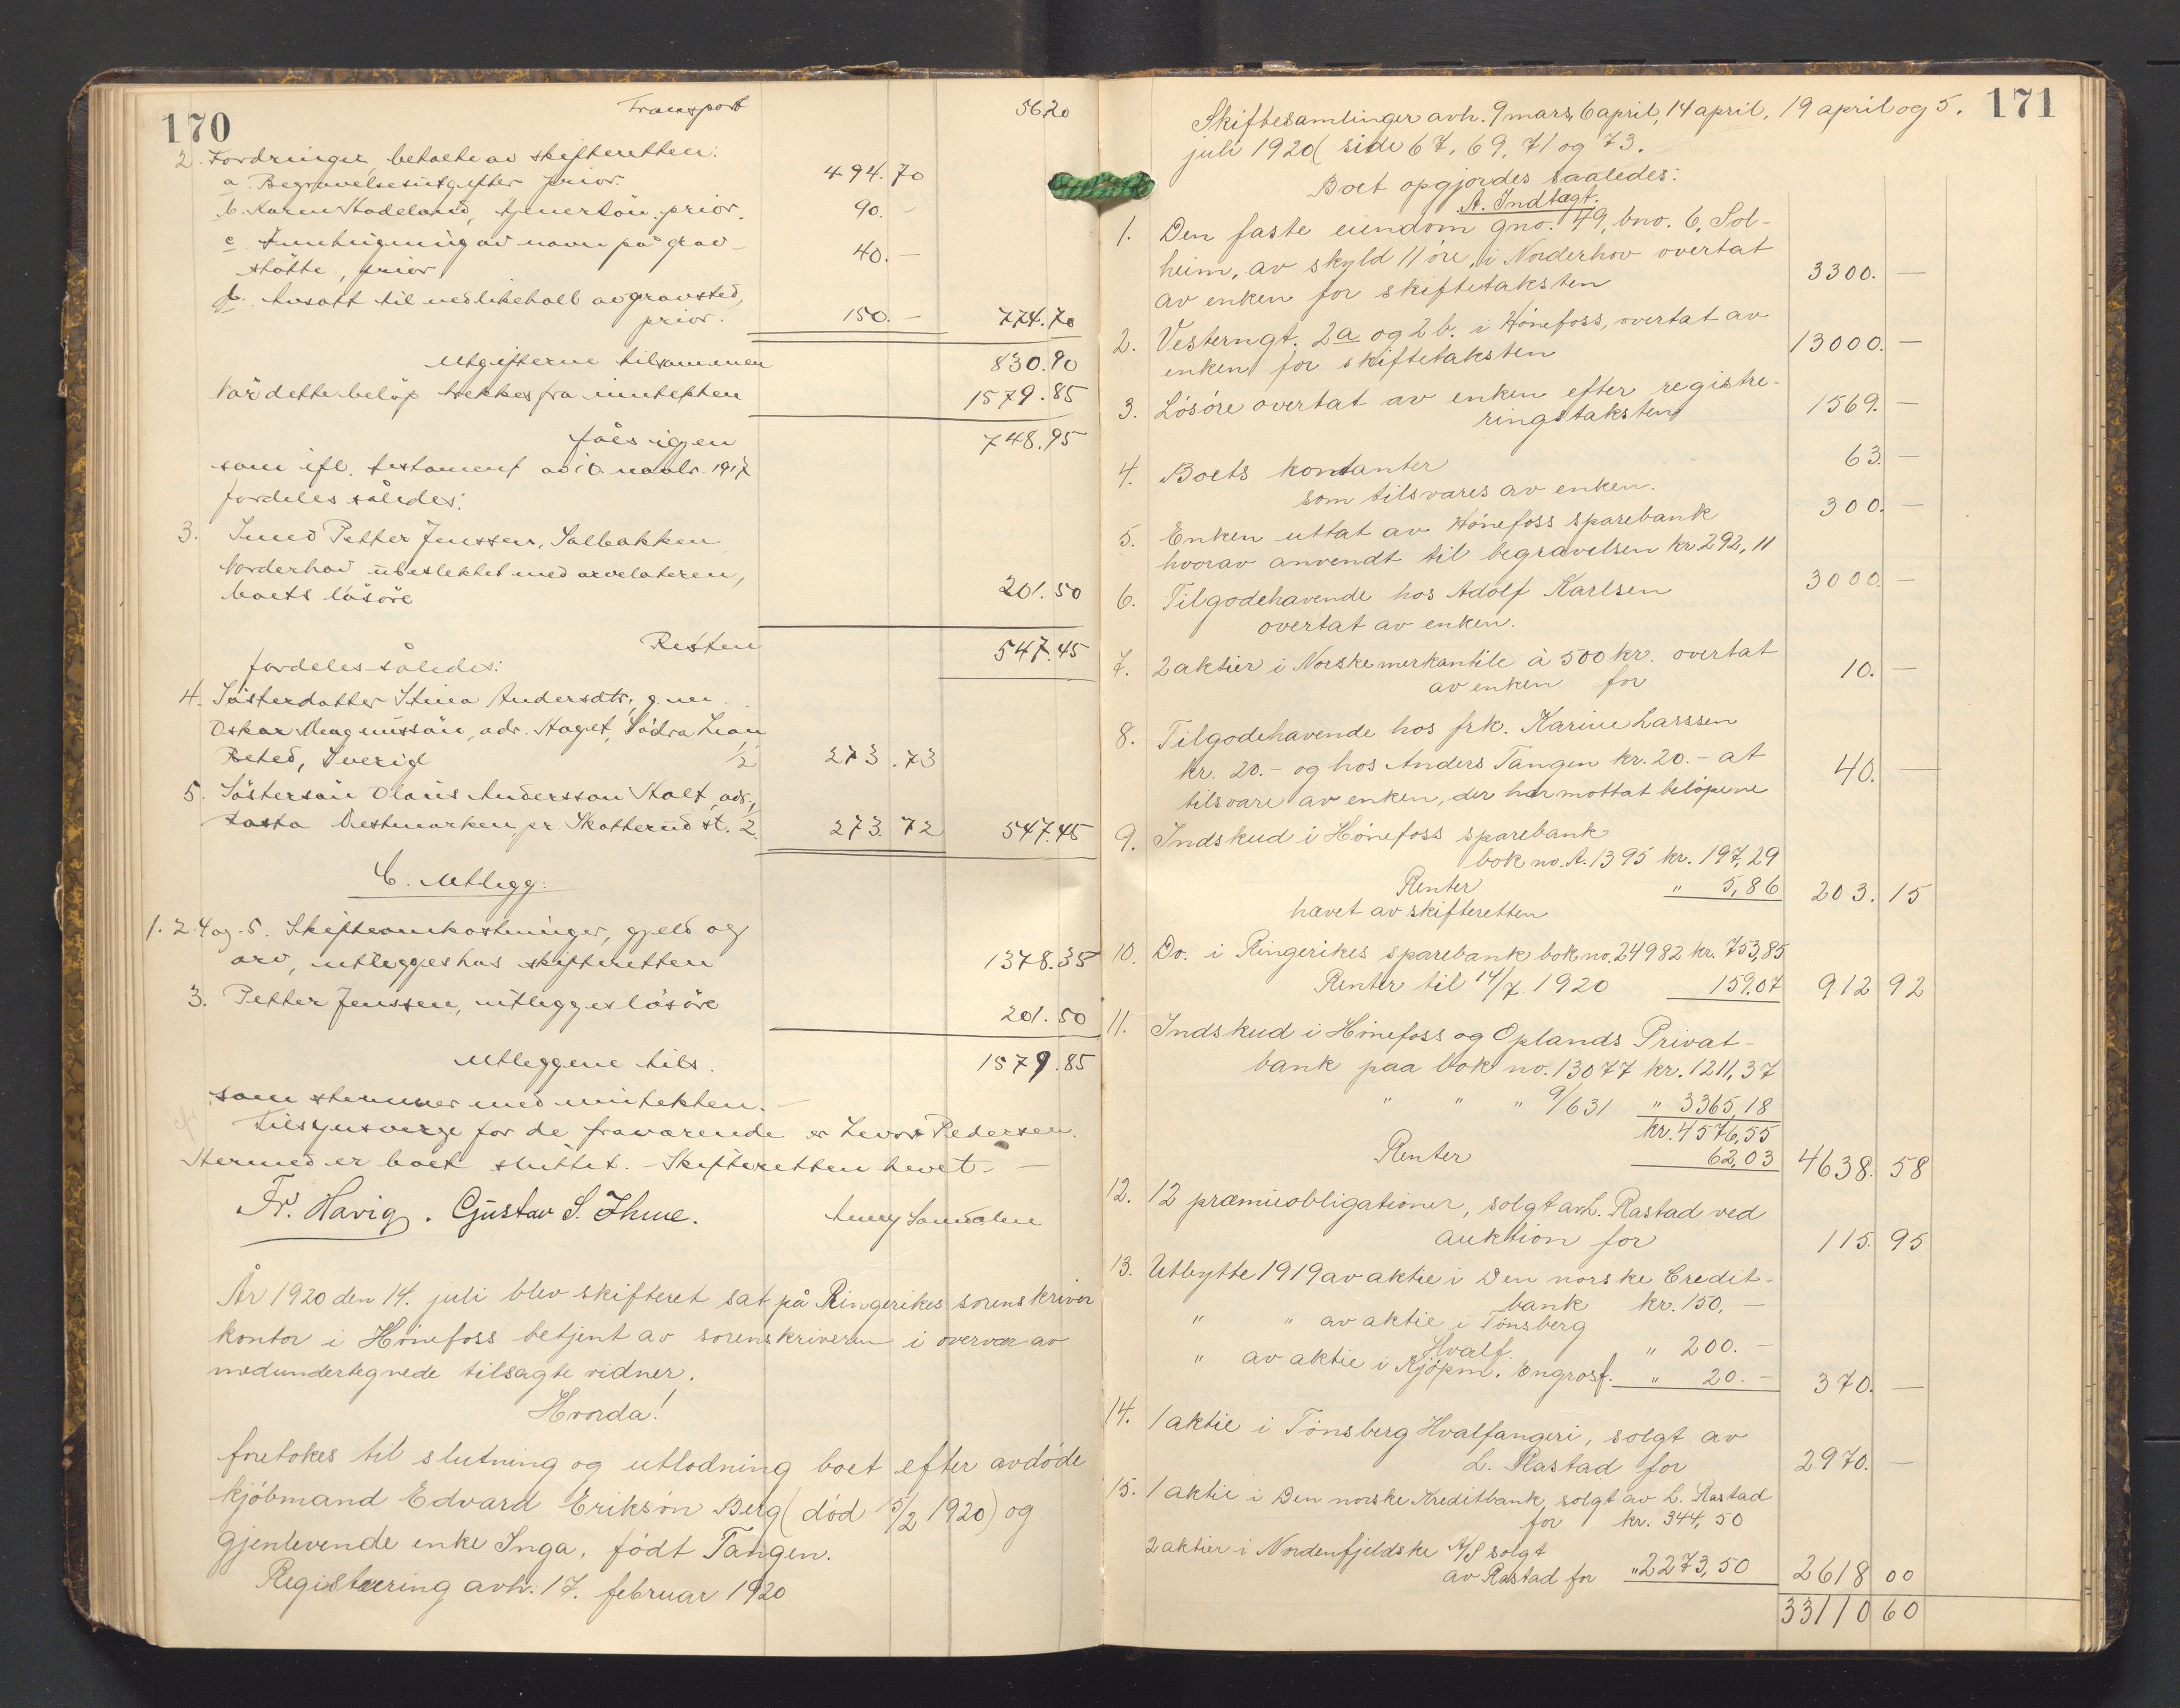 170
Transport 56.20
2. Fordringer, betalte av skifteretten:
a. Begravelsesutgifter prior. 494.70
b. Karen Hadeland, tjenerlön prior. 90.-
c. Innhugning av navn på grav-
stötte, prior 40.-
d. Avsatt til vedlikehold av gravsted,
prior. 150.- 774.70
Utgifterne tilsammen 830.90
Når dette belöp trekkes fra inntekten 1579.85
fåes igjen 748.95
som ifl. testament av 10. novbr. 1917
fordeles således:
3. Svend Petter Jenssen, Solbakken
Norderhov ubeslektet med arvelateren,
boets lösöre 201.50
Resten 547.45
fordeles således:
4. Sösterdatter Stina Andersdtr., g.m.
Oskar Magnussön, adr. Haget, Södra
Beted, Sverige 1/2 273.73
5. Söstersön Olaus Andersson Kalt, adr.,
Vestmarken pr Skotterud st. 1/2 273.72 547.45
C. Utlegg:
1. 2. 4 og 5. Skifteomkostninger, gjeld og
arv, utlegges hos skifteretten 1378.35
3. Petter Jenssen, utlegges lösöre 201.50
Utleggene tils. 1579.85
som stemmer med inntekten.-
Tilsynsverge for de fraværende er Pedersen.
Hermed er boet sluttet. Skifteretten hevet.-
Fr. Havig. Gustav S. Ihme.
År 1920 den 14. juli blev skifteret sat på Ringerikes sorenskriver
kontor i Hönefoss betjent av sorenskriveren i overvær av
medundertegnede tilsagte vidner.
Hvorda!
foretokes til slutning og utlodning boet efter avdöde
kjöbmand Edvard Eriksön Berg (död 15/2 1920) og
gjenlevende enke Inga, födt Tangen.
Registrering avh. 17. februar 1920
171
Skiftesamlinger avh. 9 mars, 6 april, 14 april, 19 april og 5.
juli 1920 ( side 67, 69, 71 og 73.
Boet opgjordes saaledes:
A. Indtægt.
1. Den faste eiendom gno. 49, bno. 6, Sol-
heim, av skyld 11 öre, i Norderhov overtat
av enken for skiftetaksten 3300. —
2. Vesterngt. 2a og 2b. i Hönefoss, overtat av
enken for skiftetaksten 13000. —
3. Lösöre overtat av enken efter registre-
ringstaksten 1569. —
4. Boets kontanter 63. —
som tilsvares av enken.
5. Enken uttat av Hönefoss sparebank 300. —
hvorav anvendt til begravelsen kr. 292,11
6. Tilgodehavende hos Adolf Karlsen 3000. —
overtat av enken.
7. 2 aktier i Norske merkantile à 500 kr. overtat
av enken for 10. —
8. Tilgodehavende hos frk. Karine Larssen
kr. 20.- og hos Anders Tangen kr. 20.- at
tilsvare av enken, der har mottat belöpene 40. —
9. Indskud i Hönefoss sparebank
bok no. A. 1395 kr. 197,29
Renter " 5,86 203. 15
hævet av skifteretten
10. Do. i Ringerikes sparebank bok no. 24982 kr. 753,85
Renter til 14/7 1920 159,07 912 92
11. Indskud i Hönefoss og Oplands Privat-
bank paa bok no. 13077 kr. 1211,37
" " " 9/631 " 3365,18
kr. 4576,55
Renter 62,03 4638. 58
12. 12 præmieobligationer, solgt av L. Rastad ved
auktion for 115. 95
13. Utbytte 1919 av aktie i Den norske Credit-
bank kr. 150,—
" " av aktie i Tönsberg
Hvalf. " 200.—
" av aktie i Kjöpm. Engrosf. " 20.— 370. —
14. 1 aktie i Tönsberg Hvalfangeri, solgt av
L. Rastad for 2970. —
15. 1 aktie i Den norske Kreditbank, solgt av L. Rastad
for kr. 344,50
2 aktier i Nordenfjeldske A/S solgt
av Rastad for " 2273,50 2618 00
33110 60